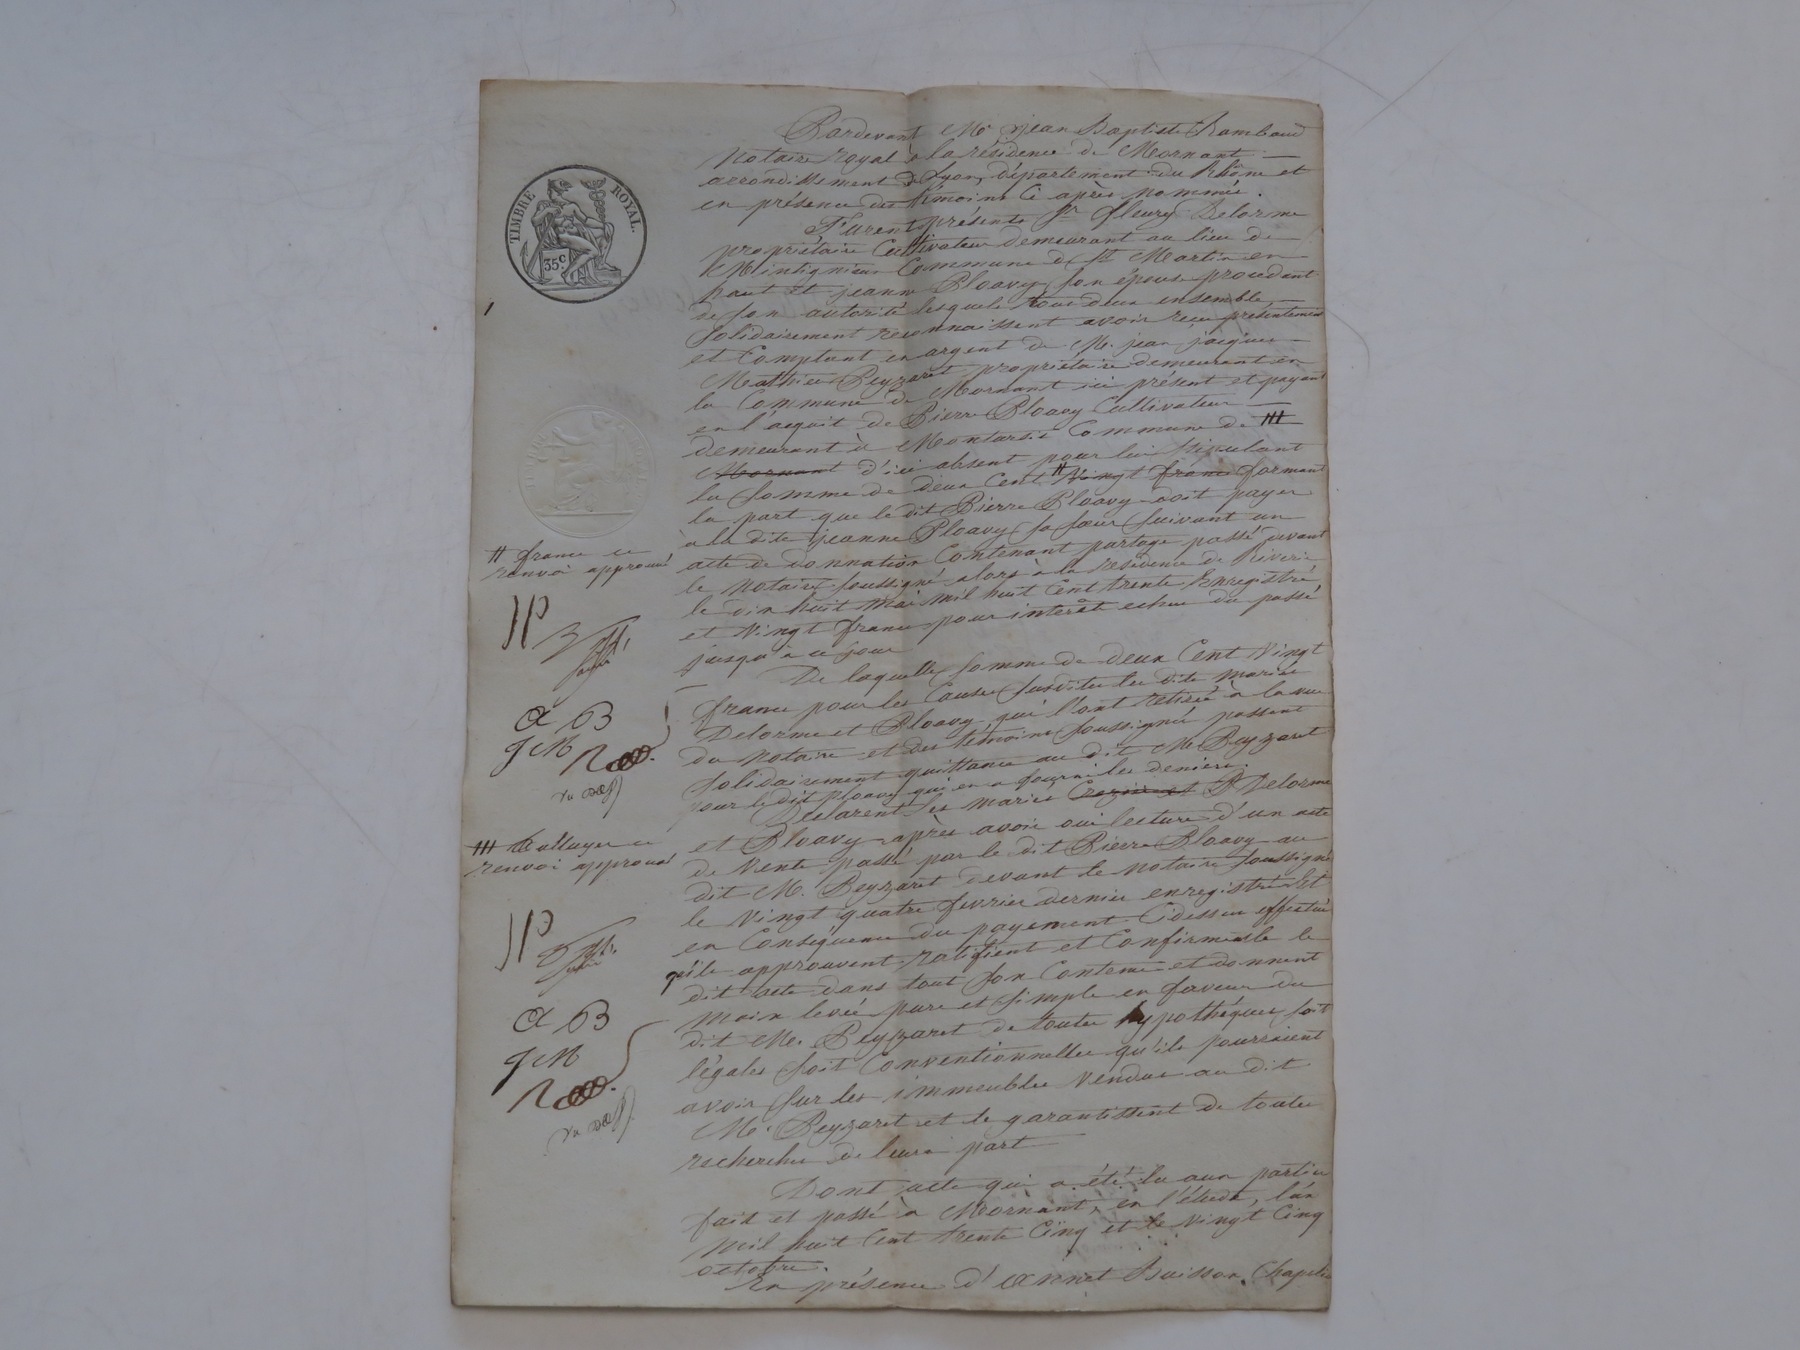 TIMBRE ROYAL.
35c
Pardevant Me jean Baptiste Rambaud
Notaire royal à la résidence de Mornant
arrondissement de Lyon, département du Rhône et
en présence des témoins ci après nommés.
Furent présents Sr fleury Delorme
propriétaire Cultivateur demeurant au lieu de
Commune de St Martin en
haut et jeanne Ploavy son épouse procédant
de son autorité lesquels tous deux ensemble
solidairement reconnaissent avoir reçu présentement
et Comptant en argent de M. jean jacques
Mathieu Peyzaret propriétaire demeurant en
la Commune de Mornant ici présent et payant
en l'acquit de Pierre Ploavy Cultivateur
demeurant à Commune de ///
Mornant d'ici absent pour lui stipulant
la somme de deux Cent # Vingt francs formant
la part que le dit Pierre Ploavy doit payer
à la dite jeanne Ploavy sa sœur suivant un
acte de donnation Contenant partage passé devant
le notaire soussigné alors à la résidence de Riverie
le dix huit mai mil huit Cent trente Enregistré
et Vingt francs pour intérêt echus du passé
jusqu'à ce jour
De laquelle somme de deux Cent Vingt
francs pour les Causes susdites les dits mariés
Delorme et Ploavy qui l'ont retirée à la vue
du notaire et des témoins soussignés passent
solidairement quittance au dit M. Peyzaret
pour le dit Ploavy qui en a fourni les deniers.
Déclarent les mariés Delorme
et Ploavy après avoir oui lecture d'un acte
de Vente passé par le dit Pierre Ploavy au
dit M. Peyzaret devant le notaire soussigné
le Vingt quatre fevrier dernier enregistré Et
en Conséquence du payement Cidessus effectué
qu'ils approuvent ratifient et Confirment le
dit acte dans tout son Contenu et donnent
main levée pure et simple en faveur du
dit M. Peyzaret de toutes hypothéques soit
légales soit Conventionnelles qu'ils pourraient
avoir sur les immeubles Vendus au dit
M. Peyzaret et le garantissent de toutes
recherches de leurs part
Dont acte qui a été lu aux parties
fait et passé à Mornant, en l'étude, l'an
mil huit Cent trente Cinq et le Vingt Cinq
octobre.
En présence d'annet Buisson, Chapelier
# francs ce
renvoi approuvé
JP
a B
J M
/// ce
renvoi approuvé
JP
a B
J M